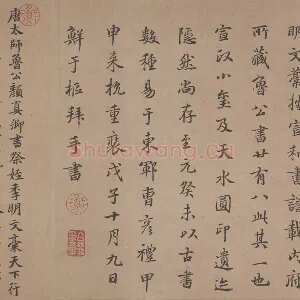 明文藁按宣和書譜載內府
所藏魯公書廿有八此其一也
宣政小璽及天水圓印遺迹
隱然尚存至元癸未以古書
數種易于東鄆曹彥禮甲
申来杭重裝戊子十月九日
鮮于樞拜手書
唐太師魯公顏真卿書祭姪季明文稾天下行